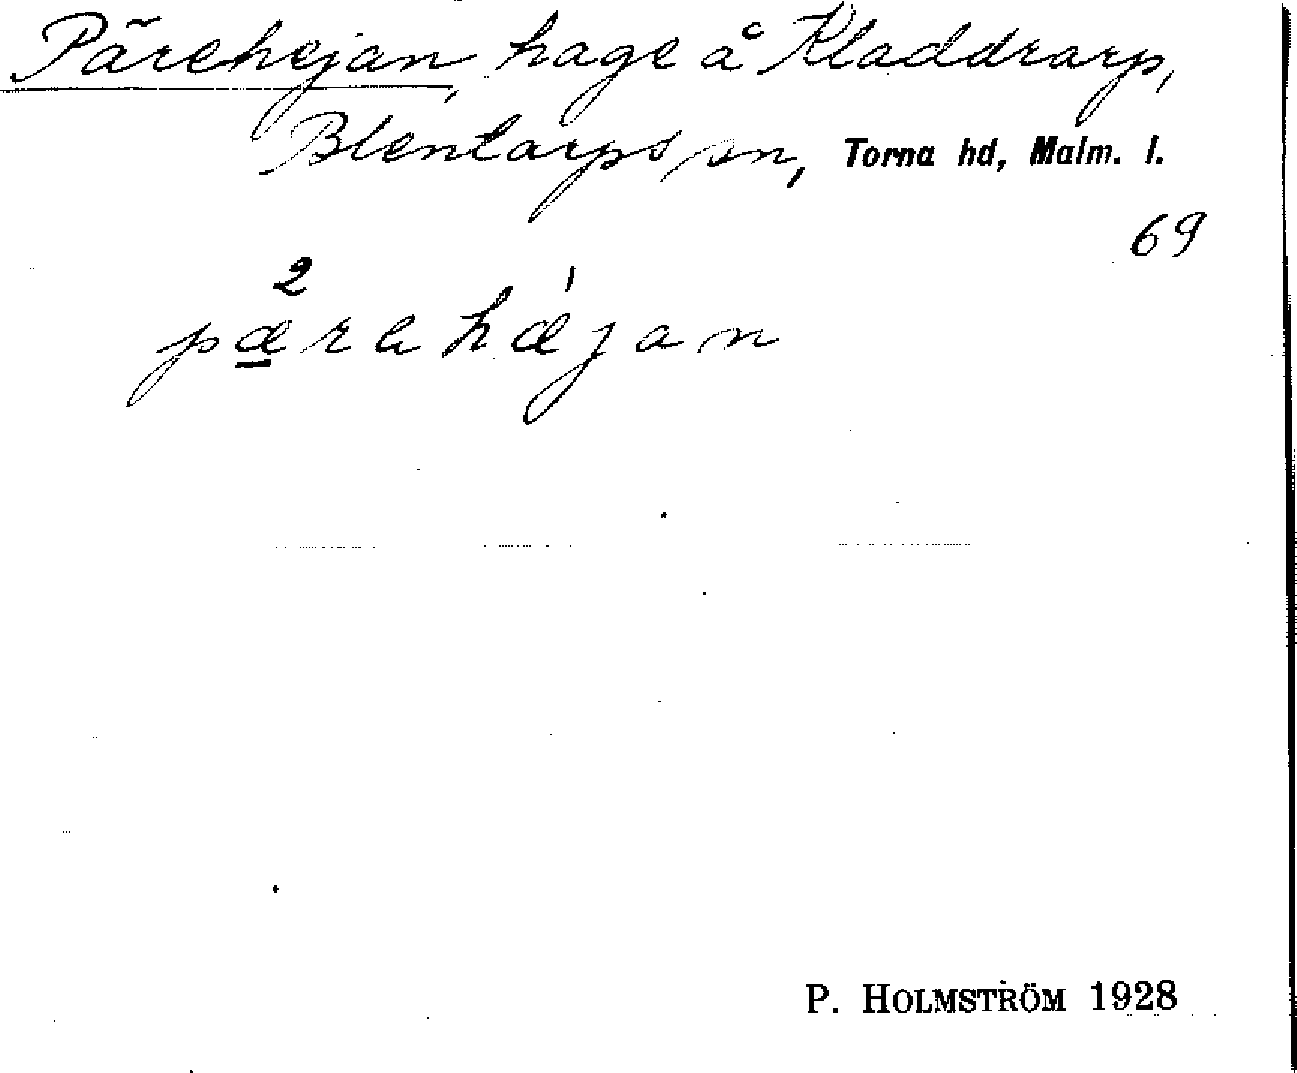 Pärehejan, hage å Kladdrarp,
Blentarps sn, Torna hd, Malm. l.
69
2 ˈ
pæ̱rahæjan
P. HOLMSTRÖM 1928